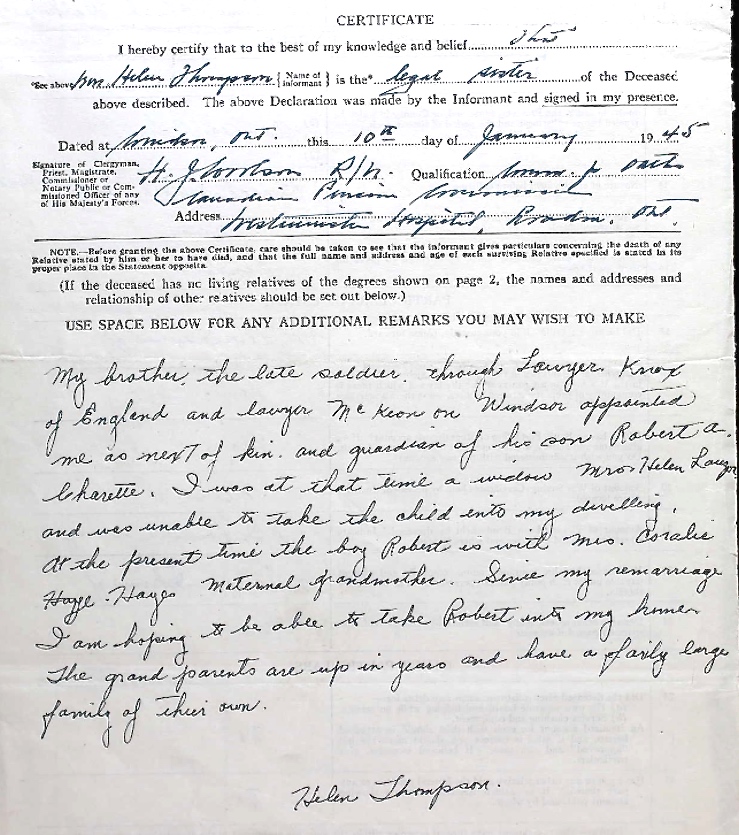 CERTIFICATE
I hereby certify that to the best of my knowledge and belief
*See above Mrs Helen Thompson {Name of informant} is the* legal sister of the Deceased
above described. The above Declaration was made by the Informant and signed in my presence.
Dated at Windsor, Ont. this 10th day of January 1945
Signature of Clergyman,
Priest, Magistrate,
Commissioner or
Notary Public or Com-
missioned Officer of any
of His Majesty's Forces.
H. J. Qualification Comm. of Oaths
Canadian Pension Commission
Address Westminster Hospital, London. Ont.
NOTE.—Before granting the above Certificate, care should be taken to see that the informant gives particulars concerning the death of any
Relative stated by him or her to have died, and that the full name and address and age of each surviving Relative specified is stated in its
proper place in the Statement opposite.
(If the deceased has no living relatives of the degrees shown on page 2, the names and addresses and
relationship of other relatives should be set out below.)
USE SPACE BELOW FOR ANY ADDITIONAL REMARKS YOU MAY WISH TO MAKE
My brother, the late soldier, through Lawyer Knox
of England and lawyer McKeon on Windsor appointed
me as next of kin. and guardian of his son Robert A.
Charette. I was at that time a widow Mrs Helen Lauzon
and was unable to take the child into my dwelling.
At the present time the boy Robert is with Mrs. Coralie
Haye Hayes Maternal grandmother. Since my remarriage
I am hoping to be able to take Robert into my home.
The grand parents are up in years and have a fairly large
family of their own.
Helen Thompson.